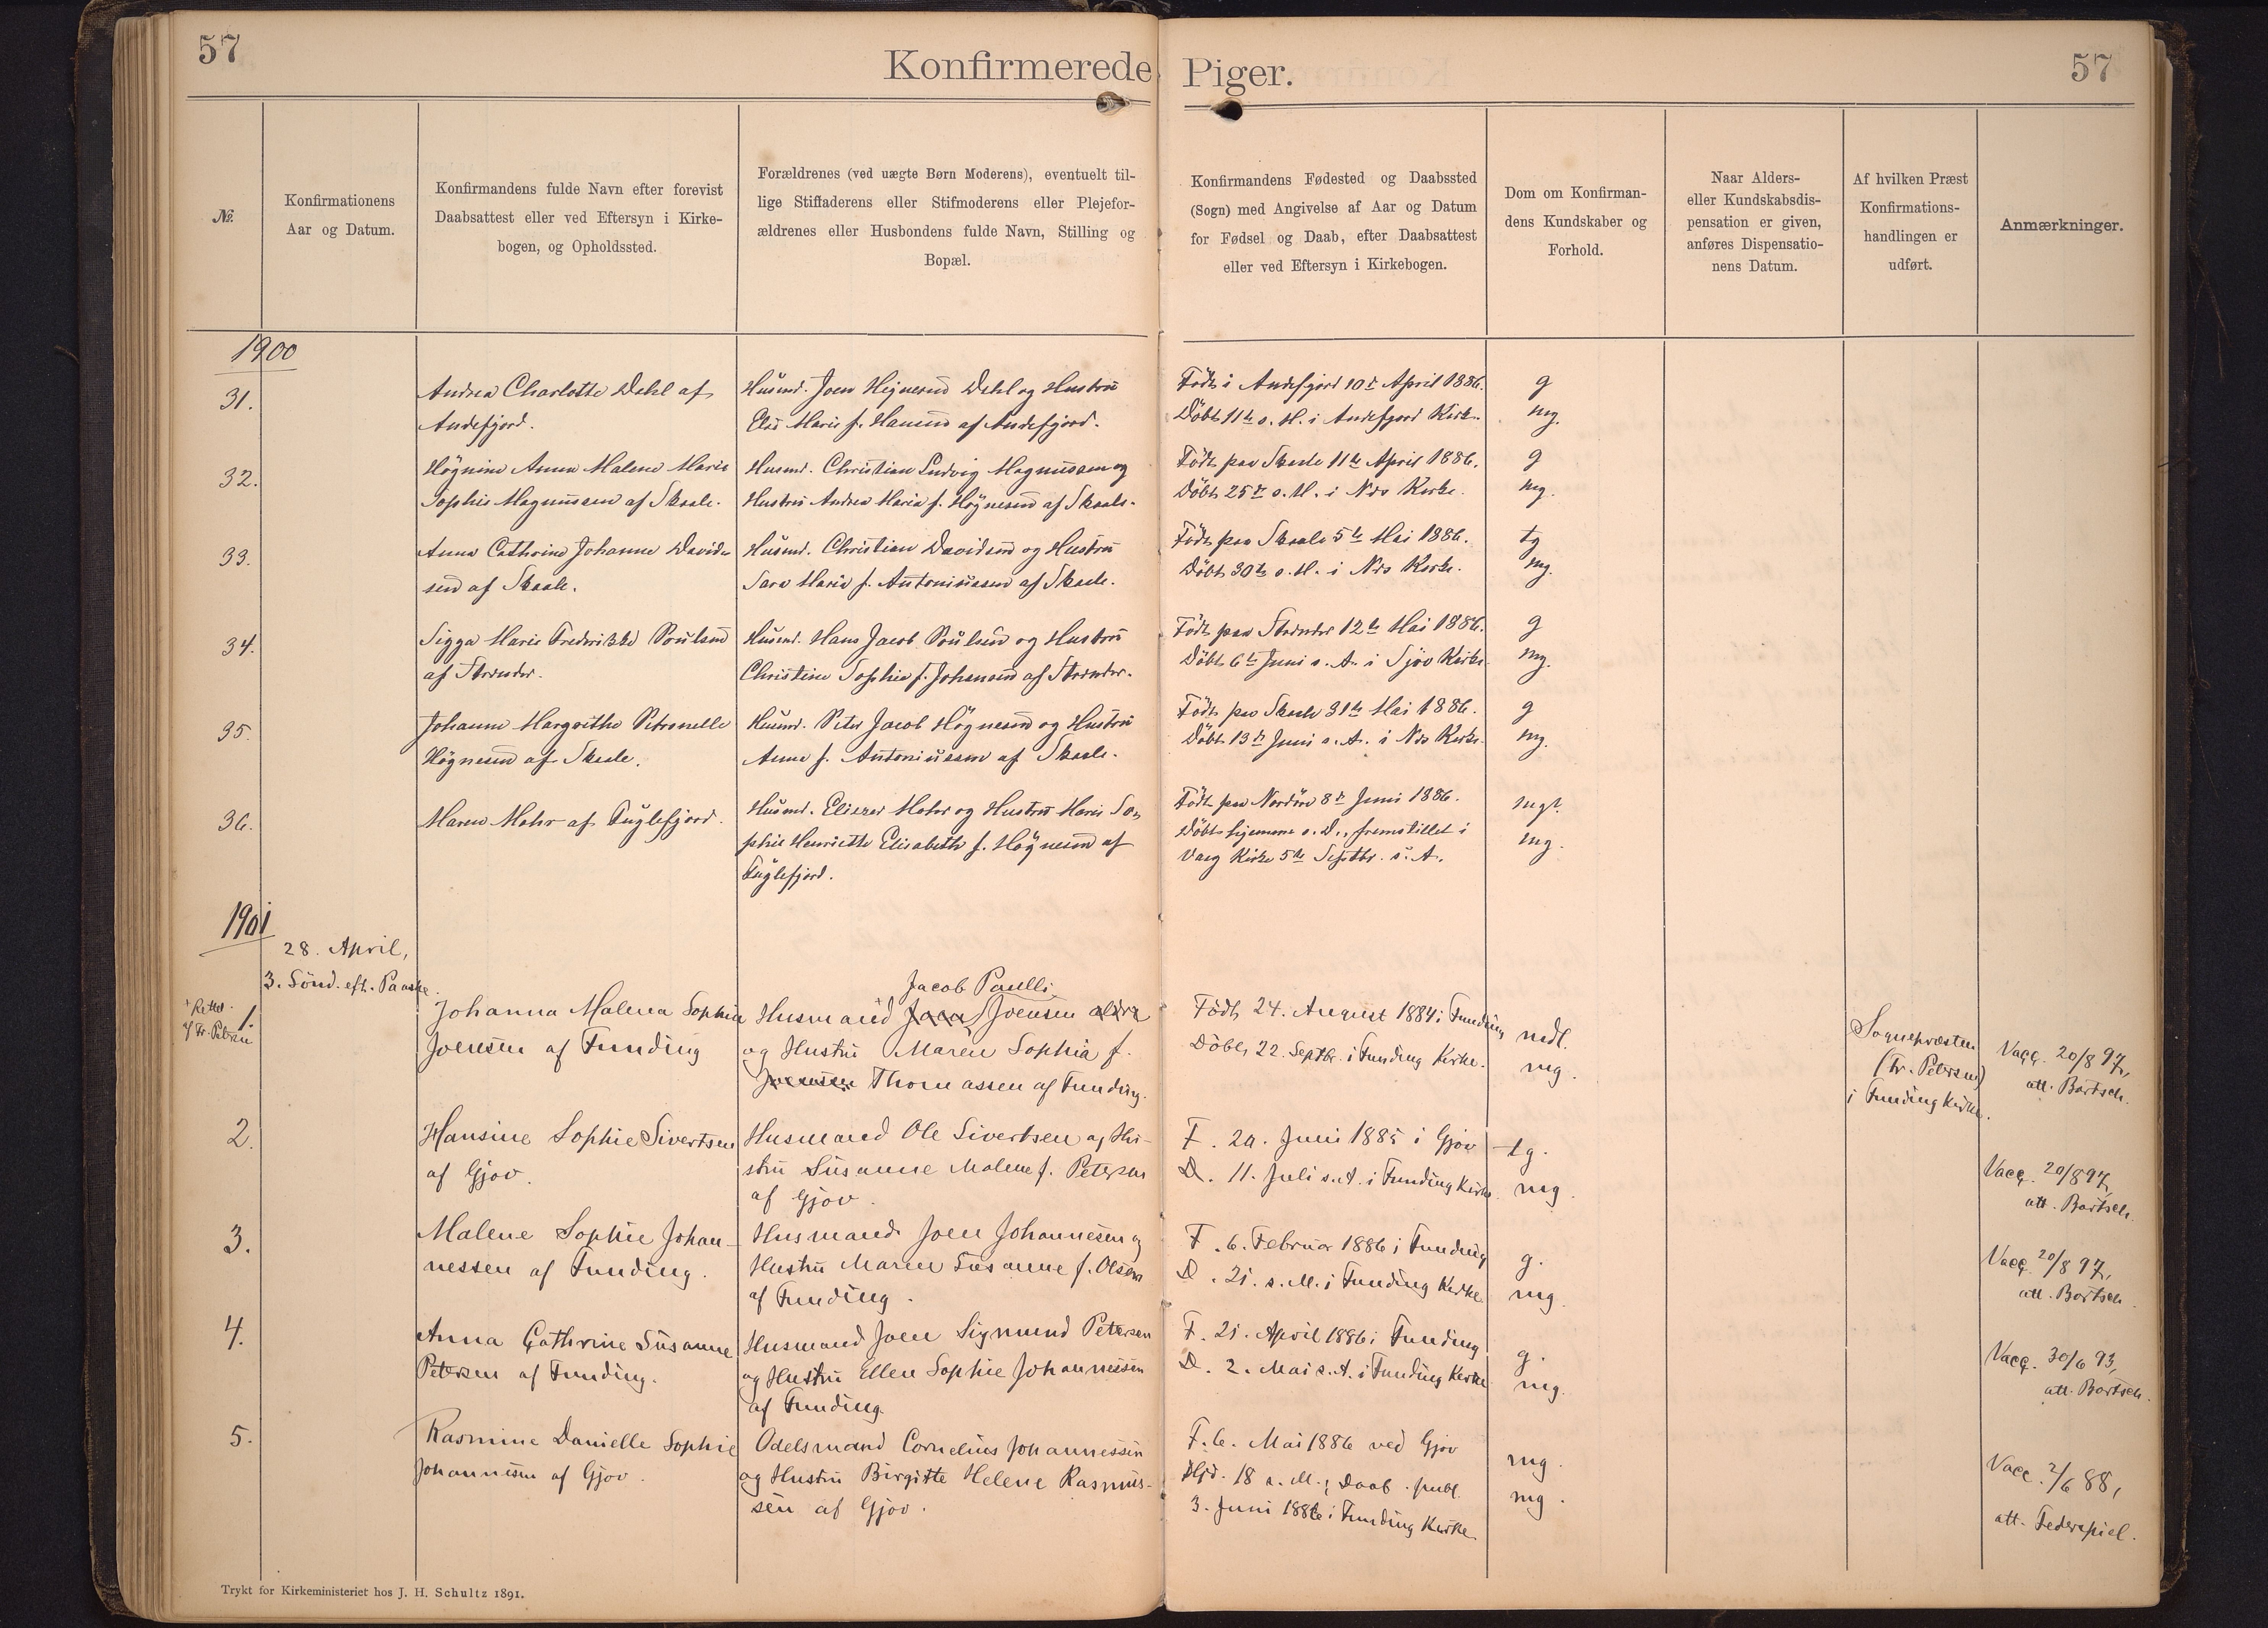 57
Konfirmerede Piger.
57
No.
Konfirmationens
Aar og Datum.
Konfirmandens fulde Navn efter forevist
Daabsattest eller ved Eftersyn i Kirke-
bogen, og Opholdssted.
Forældrenes (ved uægte Børn Moderens), eventuelt til-
lige Stiffaderens eller Stifmoderens eller Plejefor-
ældrenes eller Husbondens fulde Navn, Stilling og
Bopæl.
Konfirmandens Fødested og Daabssted
(Sogn) med Angivelse af Aar og Datum
for Fødsel og Daab, efter Daabsattest
eller ved Eftersyn i Kirkebogen.
Dom om Konfirman-
dens Kundskaber og
Forhold.
Naar Alders-
eller Kundskabsdis-
pensation er given,
anføres Dispensatio-
nens Datum.
Af hvilken Præst
Konfirmations-
handlingen er
udført.
Anmærkninger.
1900
31.
Andrea Charlotte Dahl af
Andefjord.
Husmd. Joen Hejnesen Dahl og Hustru
Else Marie f. Hansen af Andefjord.
Født i Andefjord 10de April 1886.
Döbt 11te s. M. i Andefjord Kirke.
g
mg.
32.
Högnine Anna Malene Marie
Sophie Magnussen af Skaale.
Husmd. Christian Ludvig Magnussen og
Hustru Andrea Maria f. Högnesen af Skaale.
Födt paa Skaale 11te April 1886.
Döbt 25de s. M. i Næs Kirke.
g
mg.
33.
Anna Cathrine Johanne David-
sen af Skaale.
Husmd. Christian Davidsen og Hustru
Sara Maria f. Antoniussen af Skaale.
Födt paa Skaale 5te Mai 1886.
Döbt 30te s. M. i Næs Kirke.
tg
mg.
34.
Sigga Marie Frederikke Poulsen
af Strender.
Husmd. Hans Jacob Poulsen og Hustru
Christine Sophie f. Johansen af Strender.
Födt paa Strender 12te Mai 1886.
Döbt 6te Juni s. A. i Sjöv Kirke.
g
mg.
35.
Johanne Margrethe Petronelle
Högnesen af Skaale.
Husmd. Peter Jacob Högnesen og Hustru
Anna f. Antoniussen af Skaale.
Födt paa Skaale 31te Mai 1886.
Döbt 13de Juni s. A. i Næs Kirke.
g
mg.
36.
Maren Mohr af Fuglefjord.
Husmd. Eliezer Mohr og Hustru Marie So-
phie Henriette Elisabeth f. Högnesen af
Fuglefjord.
Födt paa Nordöre 8de Juni 1886.
Döbt hjemme s. D., fremstillet i
Vaag Kirke 5te Septbr. s. A.
mg÷.
mg.
1901
28. April,
3. Sönd. eft. Paaske.
Rettet
af Fr. Petersen
1.
Johanna Malena Sophia
Joensen af Funding
Jacob Paulli
Husmand Joen Joensen ældre
og Hustru Maren Sophia f.
Joensen Thomassen af Funding.
Födt 24. August 1884 i Funding
Döbt 22. Septbr. i Funding Kirke.
mdl.
mg.
Sognepræsten
(Fr. Petersen)
i Funding Kirke.
Vacc. 20/8 97,
att. Bärtsch.
2.
Hansine Sophie Sivertsen
af Gjov.
Husmand Ole Sivertsen og Hu-
stru Susanne Malene f. Petersen
af Gjov.
F. 20. Juni 1885 i Gjov
D. 11. Juli s. A. i Funding Kirke.
tg.
mg.
Vacc. 20/8 97,
att. Bärtsch.
3.
Malene Sophie Johan-
nessen af Funding.
Husmand Joen Johannesen og
Hustru Maren Susanne f. Olsen
af Funding.
F. 6. Februar 1886 i Funding
D. 21. s. M. i Funding Kirke
g.
mg.
Vacc. 20/8 97,
att. Bärtsch.
4.
Anna Cathrine Susanne
Petersen af Funding.
Husmand Joen Sigmund Petersen
og Hustru Ellen Sophie Johannessen
af Funding.
F. 21. April 1886 i Funding
D. 2. Mai s. A. i Funding Kirke
g.
mg.
Vacc. 30/6 93,
att. Bärtsch.
5.
Rasmine Danielle Sophie
Johannesen af Gjov.
Odelsmand Cornelius Johannessen
og Hustru Birgitte Helene Rasmus-
sen af Gjov.
F. 6. Mai 1886 ved Gjov
Hjd. 18 s. M.; Daab. publ.
3. Juni 1886 i Funding Kirke
mg.
mg.
Vacc. 2/6 88,
att. Federspiel.
Trykt for Kirkeministeriet hos J. H. Schultz 1891.